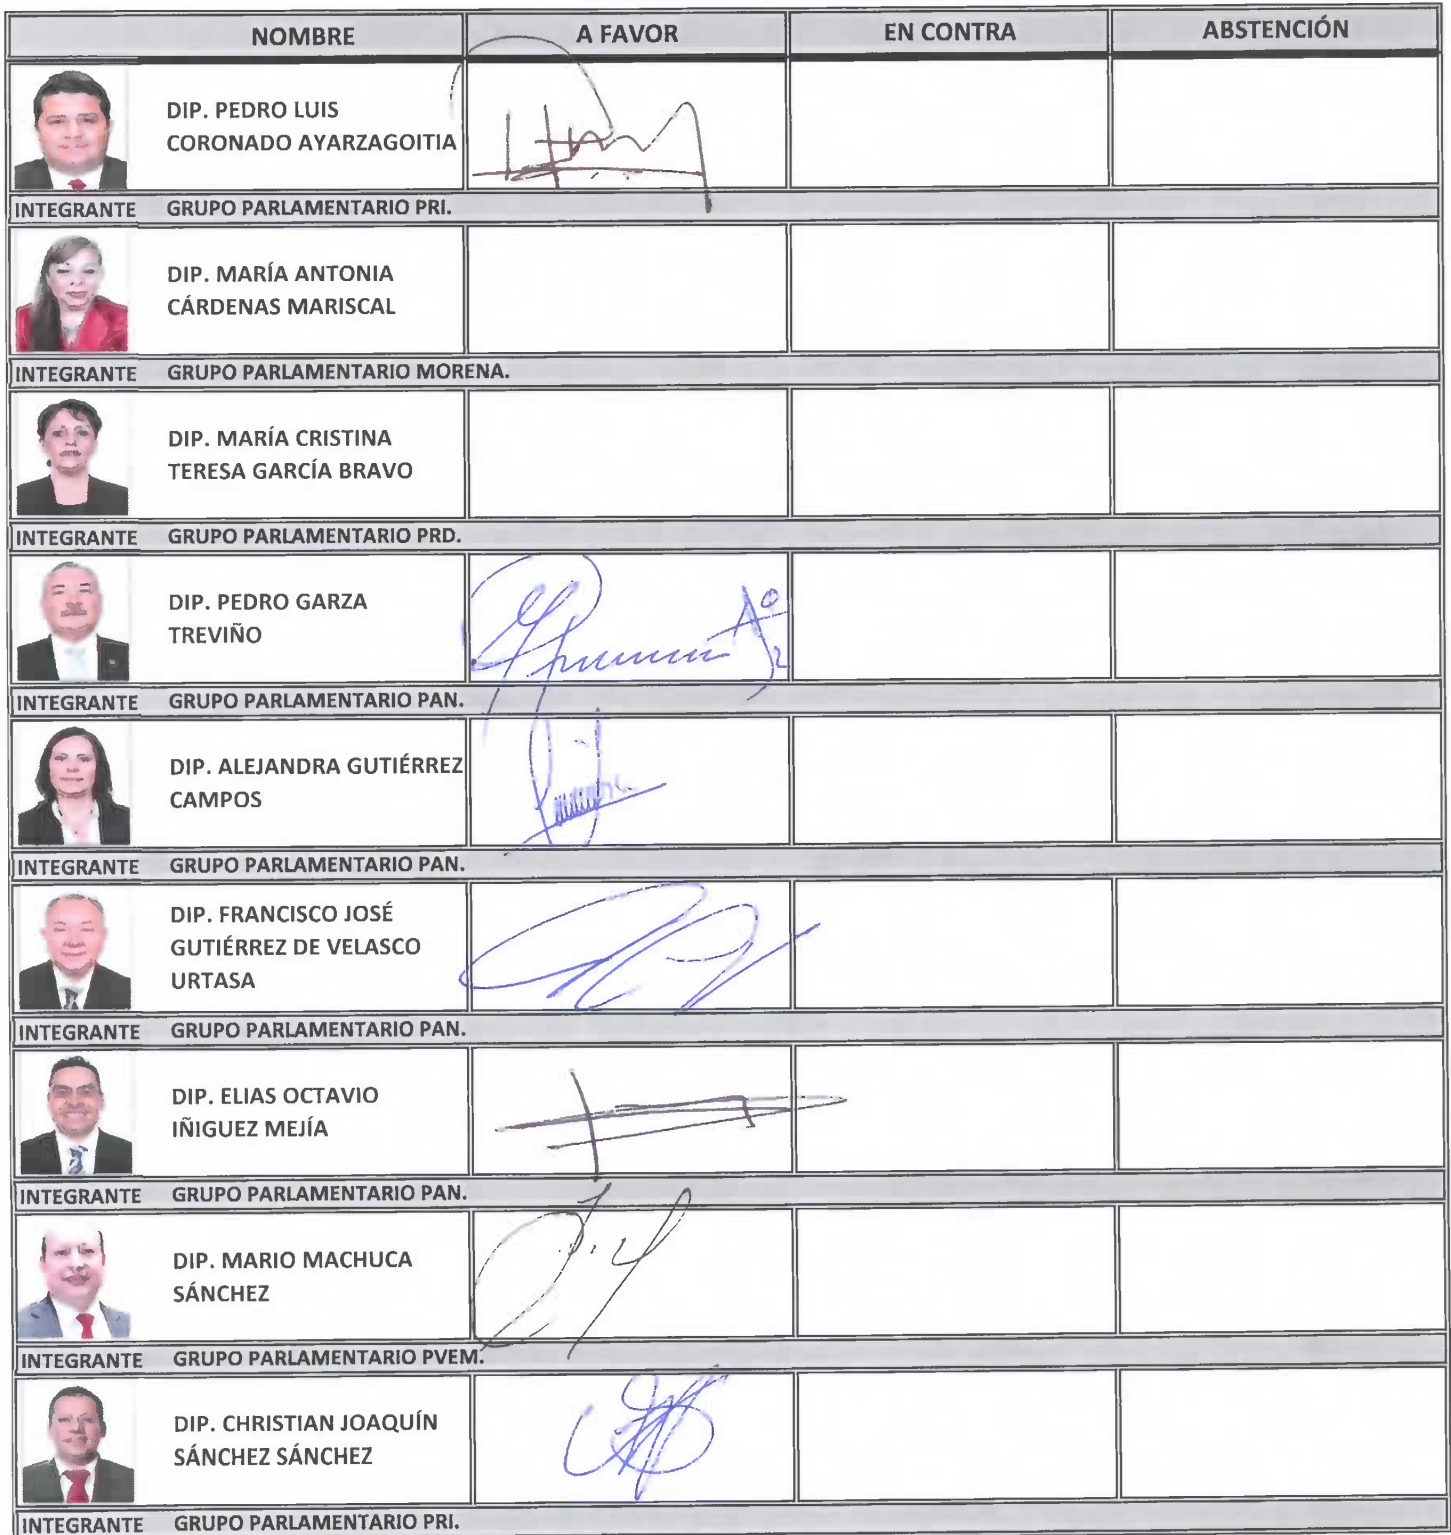 NOMBRE A FAVOR EN CONTRA ABSTENCIÓN
DIP. PEDRO LUIS
CORONADO AYARZAGOITIA
INTEGRANTE GRUPO PARLAMENTARIO PRI.
DIP. MARÍA ANTONIA
CÁRDENAS MARISCAL
INTEGRANTE GRUPO PARLAMENTARIO MORENA.
DIP. MARÍA CRISTINA
TERESA GARCÍA BRAVO
INTEGRANTE GRUPO PARLAMENTARIO PRD.
DIP. PEDRO GARZA
TREVIÑO
INTEGRANTE GRUPO PARLAMENTARIO PAN.
DIP. ALEJANDRA GUTIÉRREZ
CAMPOS
INTEGRANTE GRUPO PARLAMENTARIO PAN.
DIP. FRANCISCO JOSÉ
GUTIÉRREZ DE VELASCO
URTASA
INTEGRANTE GRUPO PARLAMENTARIO PAN.
DIP. ELIAS OCTAVIO
IÑIGUEZ MEJÍA
INTEGRANTE GRUPO PARLAMENTARIO PAN.
DIP. MARIO MACHUCA
SÁNCHEZ
INTEGRANTE GRUPO PARLAMENTARIO PVEM.
DIP. CHRISTIAN JOAQUÍN
SÁNCHEZ SÁNCHEZ
INTEGRANTE GRUPO PARLAMENTARIO PRI.